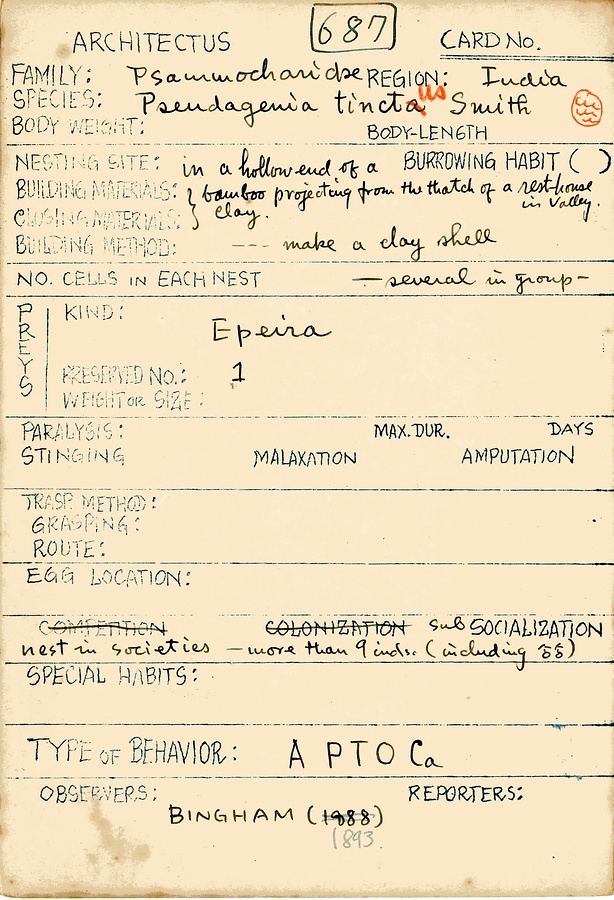 687
ARCHITECTUS CARD NO.
FAMILY: Psammocharidae REGION: India
SPECIES: Pseudagenia tincta us Smith
BODY WEIGHT: BODY-LENGTH
NESTING SITE: in a hollow end of a BURROWING HABIT ( )
BUILDING MATERIALS: } bamboo projecting from the thatch of a rest-house
in valley.
CLOSING MATERIALS: clay.
BUILDING METHOD: --- make a clay shell
NO. CELLS IN EACH NEST —several in group—
PREYS
KIND:
Epeira
PRESERVED NO.: 1
WEIGHT OR SIZE:
PARALYSIS: MAX. DUR. DAYS
STINGING MALAXATION AMPUTATION
TRASP. METHOD:
GRASPING:
ROUTE:
EGG LOCATION:
COMPETITION COLONIZATION sub SOCIALIZATION
nest in societies — more than 9 inds. (including ♂♂)
SPECIAL HABITS:
TYPE OF BEHAVIOR: A P T O Ca
OBSERVERS: REPORTERS:
BINGHAM (1888)
1893.